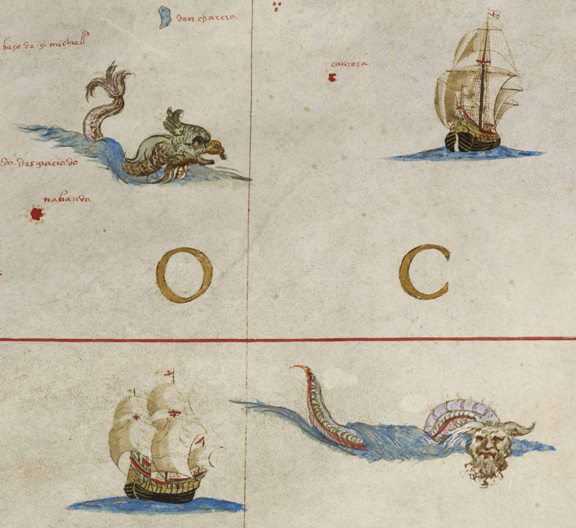 don charcia
baso de s. michell
cancosa
da. desgraciado
trabanda
O C